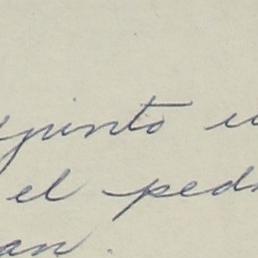 djunto u
el ped
an.